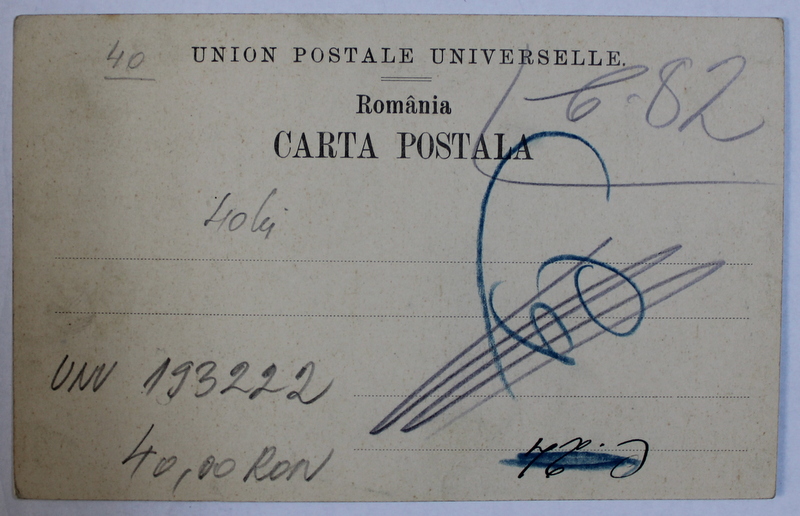 40
UNION POSTALE UNIVERSELLE.
România
CARTA POSTALA
6-82
40 lei
60
UNV 193222
40,00 RON